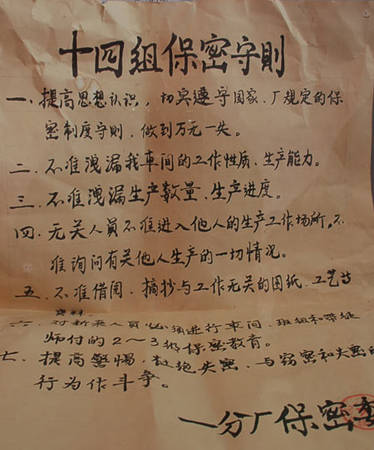 十四组保密守则
一、提高思想认识，切实遵守国家、厂规定的保
密制度守则，做到万无一失。
二、不准洩漏我车间的工作性质、生产能力。
三、不准洩漏生产数量、生产进度。
四、无关人员不准进入他人的生产工作场所，不
准询问有关他人生产的一切情况。
五、不准借阅、摘抄与工作无关的图纸、工艺
资料。
六、对新来人员必须进行车间、班组和带班
师付的2～3级保密教育。
七、提高警惕，杜绝失密，与窃密和失密的
行为作斗争。
一分厂保密